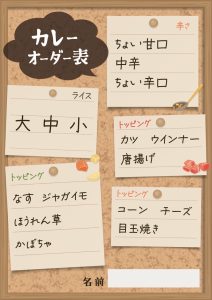 カレー
オーダー表
辛さ
ちょい甘口
中辛
ちょい辛口
ライス
大 中 小
トッピング
カツ ウインナー
唐揚げ
トッピング
なす ジャガイモ
ほうれん草
かぼちゃ
トッピング
コーン チーズ
目玉焼き
名前